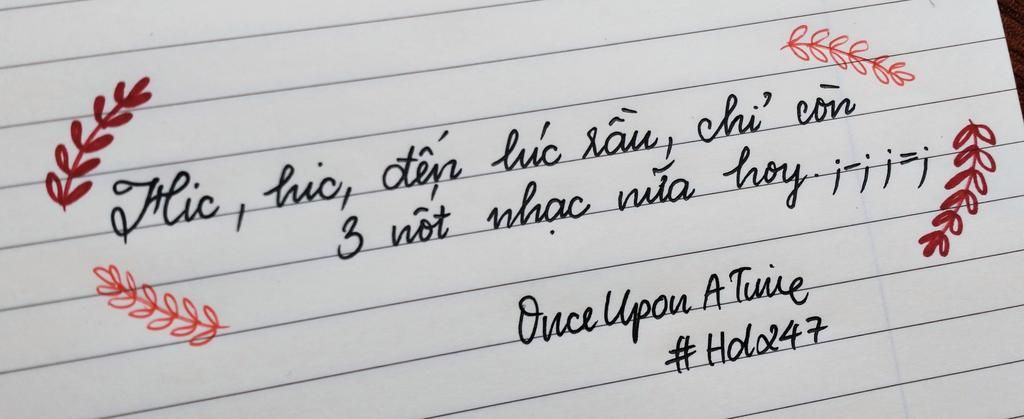 Hic, hic, đến lúc sầu, chỉ còn
3 nốt nhạc nữa hoy. ;-; ;=;
Once Upon A Tune
#Hda247